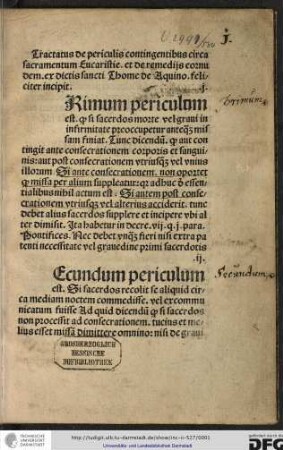 Tractatus de periculis contingentibus circa
sacramentum Eucaristie. et de remedijs eorun
dem. ex dictis sancti Thome de Aquino. feli
citer incipit.
.I.
Rimum periculum
primum
est. ꝙ si sacerdos morte vel graui in
infirmitate preoccupetur anteq̃ mis
sam finiat. Tunc dicendũ. ꝙ aut con
tingit ante consecrationem corporis et sangui
nis: aut post consecrationem vtriusqȝ vel vnius
illorum. Si ante consecrationem. non oportet
ꝙ missa per alium suppleatur: qꝛ adhuc ð essen
tialibus nihil actum est. Si autem post conse
crationem vtriusqȝ vel alterius acciderit. tunc
debet alius sacerdos supplere et incipere vbi al
ter dimisit. Ita habetur in decre. vij. q. j. para.
Pontifices. Nec debet vnq̃ȝ fieri nisi extra pa
tenti necessitate vel grauedine primi sacerdotis
.ij.
Ecundum periculum
Secundum
est. Si sacerdos recolit se aliquid cir
ca mediam noctem commedisse. vel excommu
nicatum fuisse Ad quid dicendũ ꝙ si sacerdos
non processit ad consecrationem. tucius et me
lius esset missã dimittere omnino: nisi de graui
GROSHERZOGLICH
HESSISCHE
HOFBIBLIOTHEK
http://tudigit.ulb.tu-darmstadt.de/show/inc-ii-527/0001
Universitäts- und Landesbibliothek Darmstadt
DFG